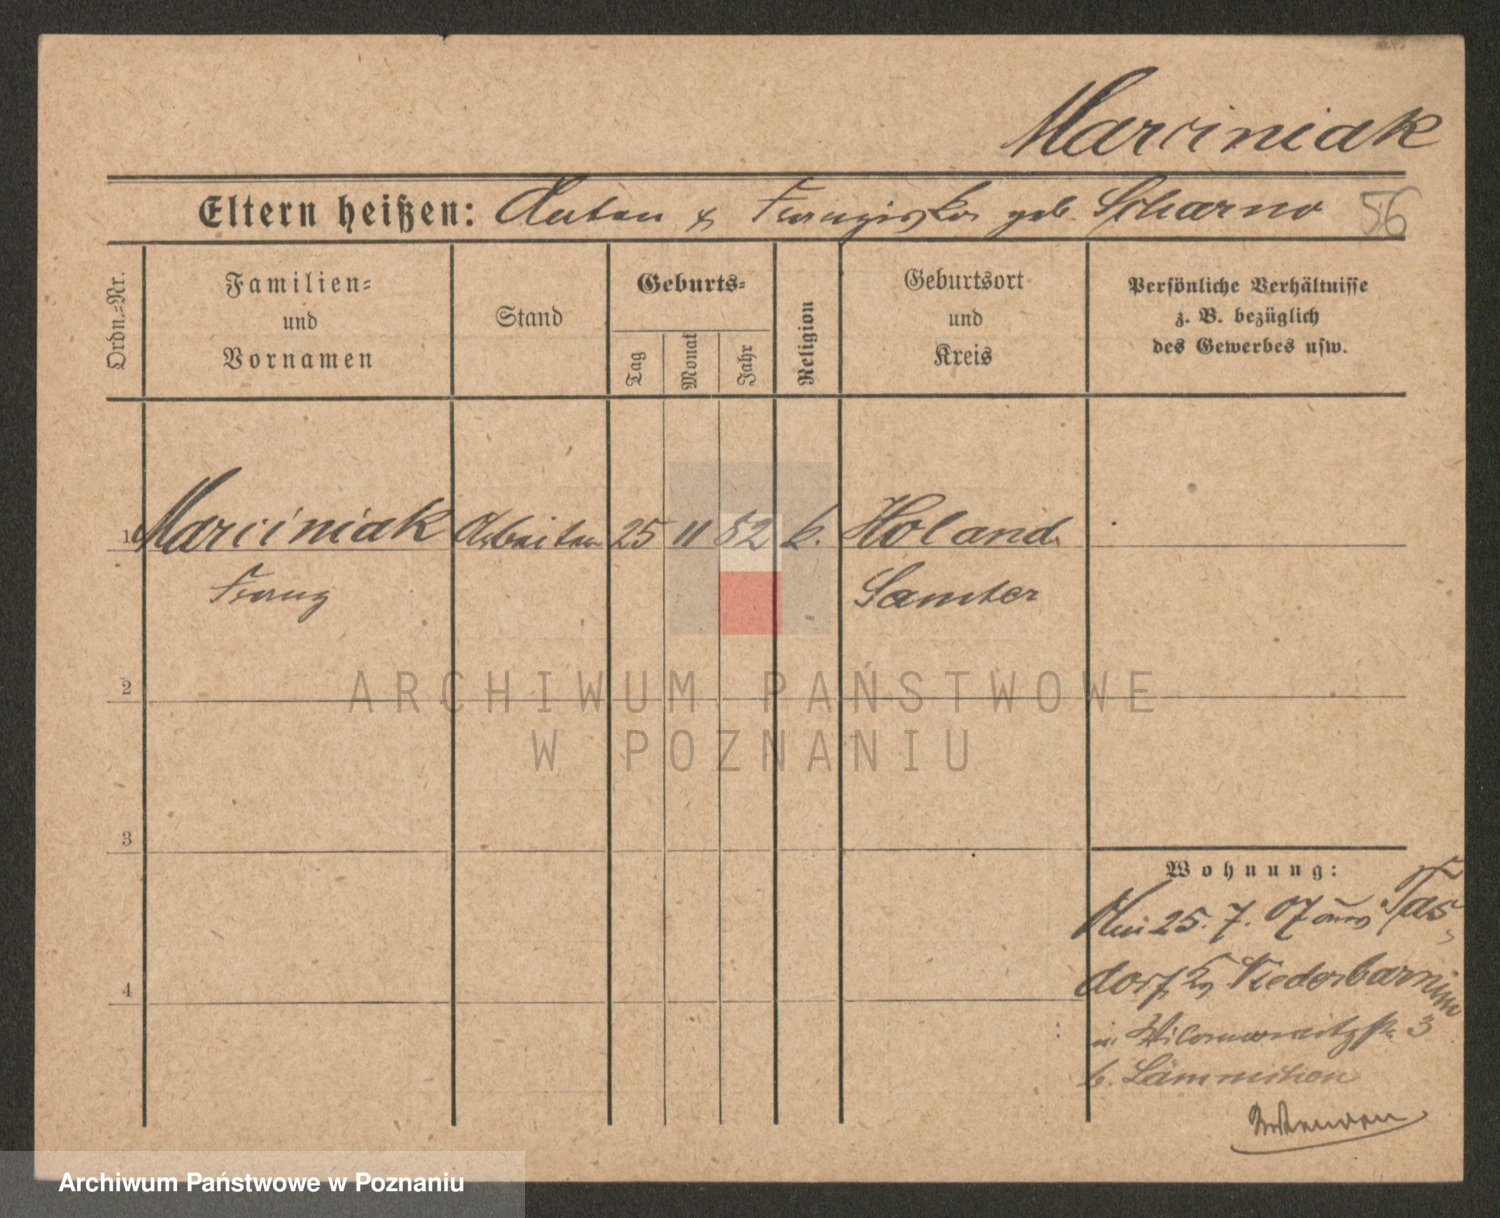 Marciniak
Eltern heißen: Anton & Franziska geb. Scharno 56
Ordn.=Nr.
Familien=
und
Vornamen
Stand
Geburts=
Tag
Monat
Jahr
Religion
Geburtsort
und
Kreis
Persönliche Verhältnisse
z. B. bezüglich
des Gewerbes usw.
1 Marciniak Arbeiter 25 11 82 k. Holand
Franz Samter
2
ARCHIWUM PAŃSTWOWE
W POZNANIU
3
Wohnung:
25. 7. 07 aus Tas
dorf, Niederbarnim
in 3
b.
4
Archiwum Państwowe w Poznaniu